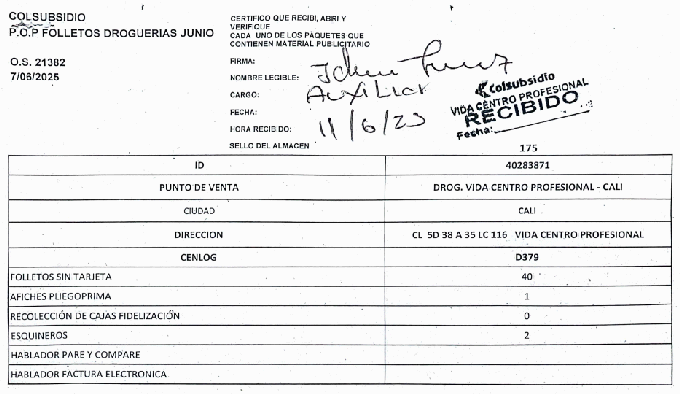 COLSUBSIDIO
P.O.P FOLLETOS DROGUERIAS JUNIO
O.S. 21382
7/06/2025
CERTIFICO QUE RECIBI, ABRI Y
VERIFIQUE
CADA UNO DE LOS PAQUETES QUE
CONTIENEN MATERIAL PUBLICITARIO
FIRMA:
NOMBRE LEGIBLE:
CARGO: Auxiliar
FECHA: 11/6/25
HORA RECIBIDO:
SELLO DEL ALMACEN
Colsubsidio
VIDA CENTRO PROFESIONAL
RECIBIDO
Fecha:
175
ID 40283871
PUNTO DE VENTA DROG. VIDA CENTRO PROFESIONAL - CALI
CIUDAD CALI
DIRECCION CL 5D 38 A 35 LC 116 VIDA CENTRO PROFESIONAL
CENLOG D379
FOLLETOS SIN TARJETA 40
AFICHES PLIEGOPRIMA 1
RECOLECCIÓN DE CAJAS FIDELIZACIÓN 0
ESQUINEROS 2
HABLADOR PARE Y COMPARE
HABLADOR FACTURA ELECTRONICA